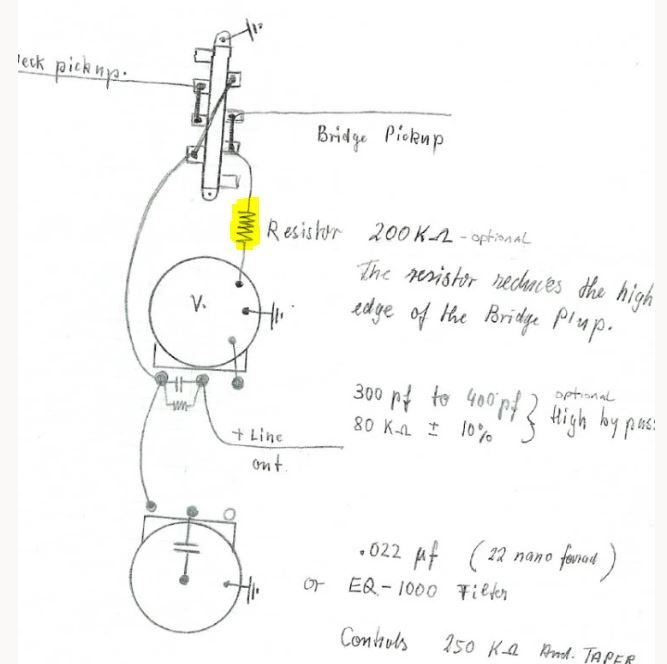 eck pickup.
Bridge Pickup
Resistor 200 KΩ - optional
The resistor reduces the high
edge of the Bridge P/up.
V.
300 pf to 400 pf } optional
80 KΩ ± 10% } High by pas
+ Line
out.
.022 µf (22 nano farad)
or EQ-1000 Filter
Controls 250 KΩ Aud. TAPER